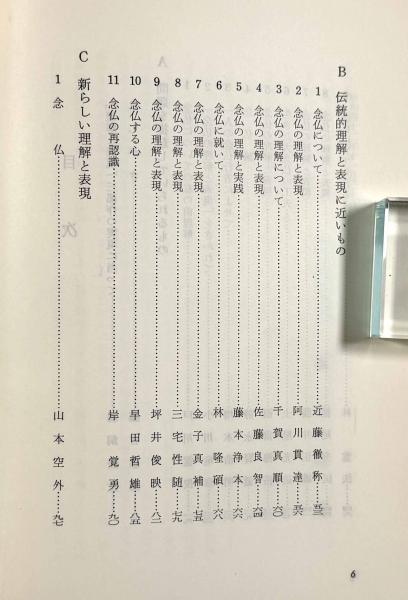 B 伝統的理解と表現に近いもの
1 念仏について……近藤徹称……五三
2 念仏の理解と表現……阿川貫達……五六
3 念仏の理解について……千賀真順……六〇
4 念仏の理解と表現……佐藤良智……六四
5 念仏の理解と実践……藤本浄本……六六
6 念仏に就いて……林隆碩……六八
7 念仏の理解と表現……金子真補……七五
8 念仏の理解と表現……三宅性随……七九
9 念仏の理解と表現……坪井俊映……八二
10 念仏する心……早田哲雄……八五
11 念仏の再認識……岸覚勇……九〇
C 新らしい理解と表現
1 念仏……山本空外……九七
6